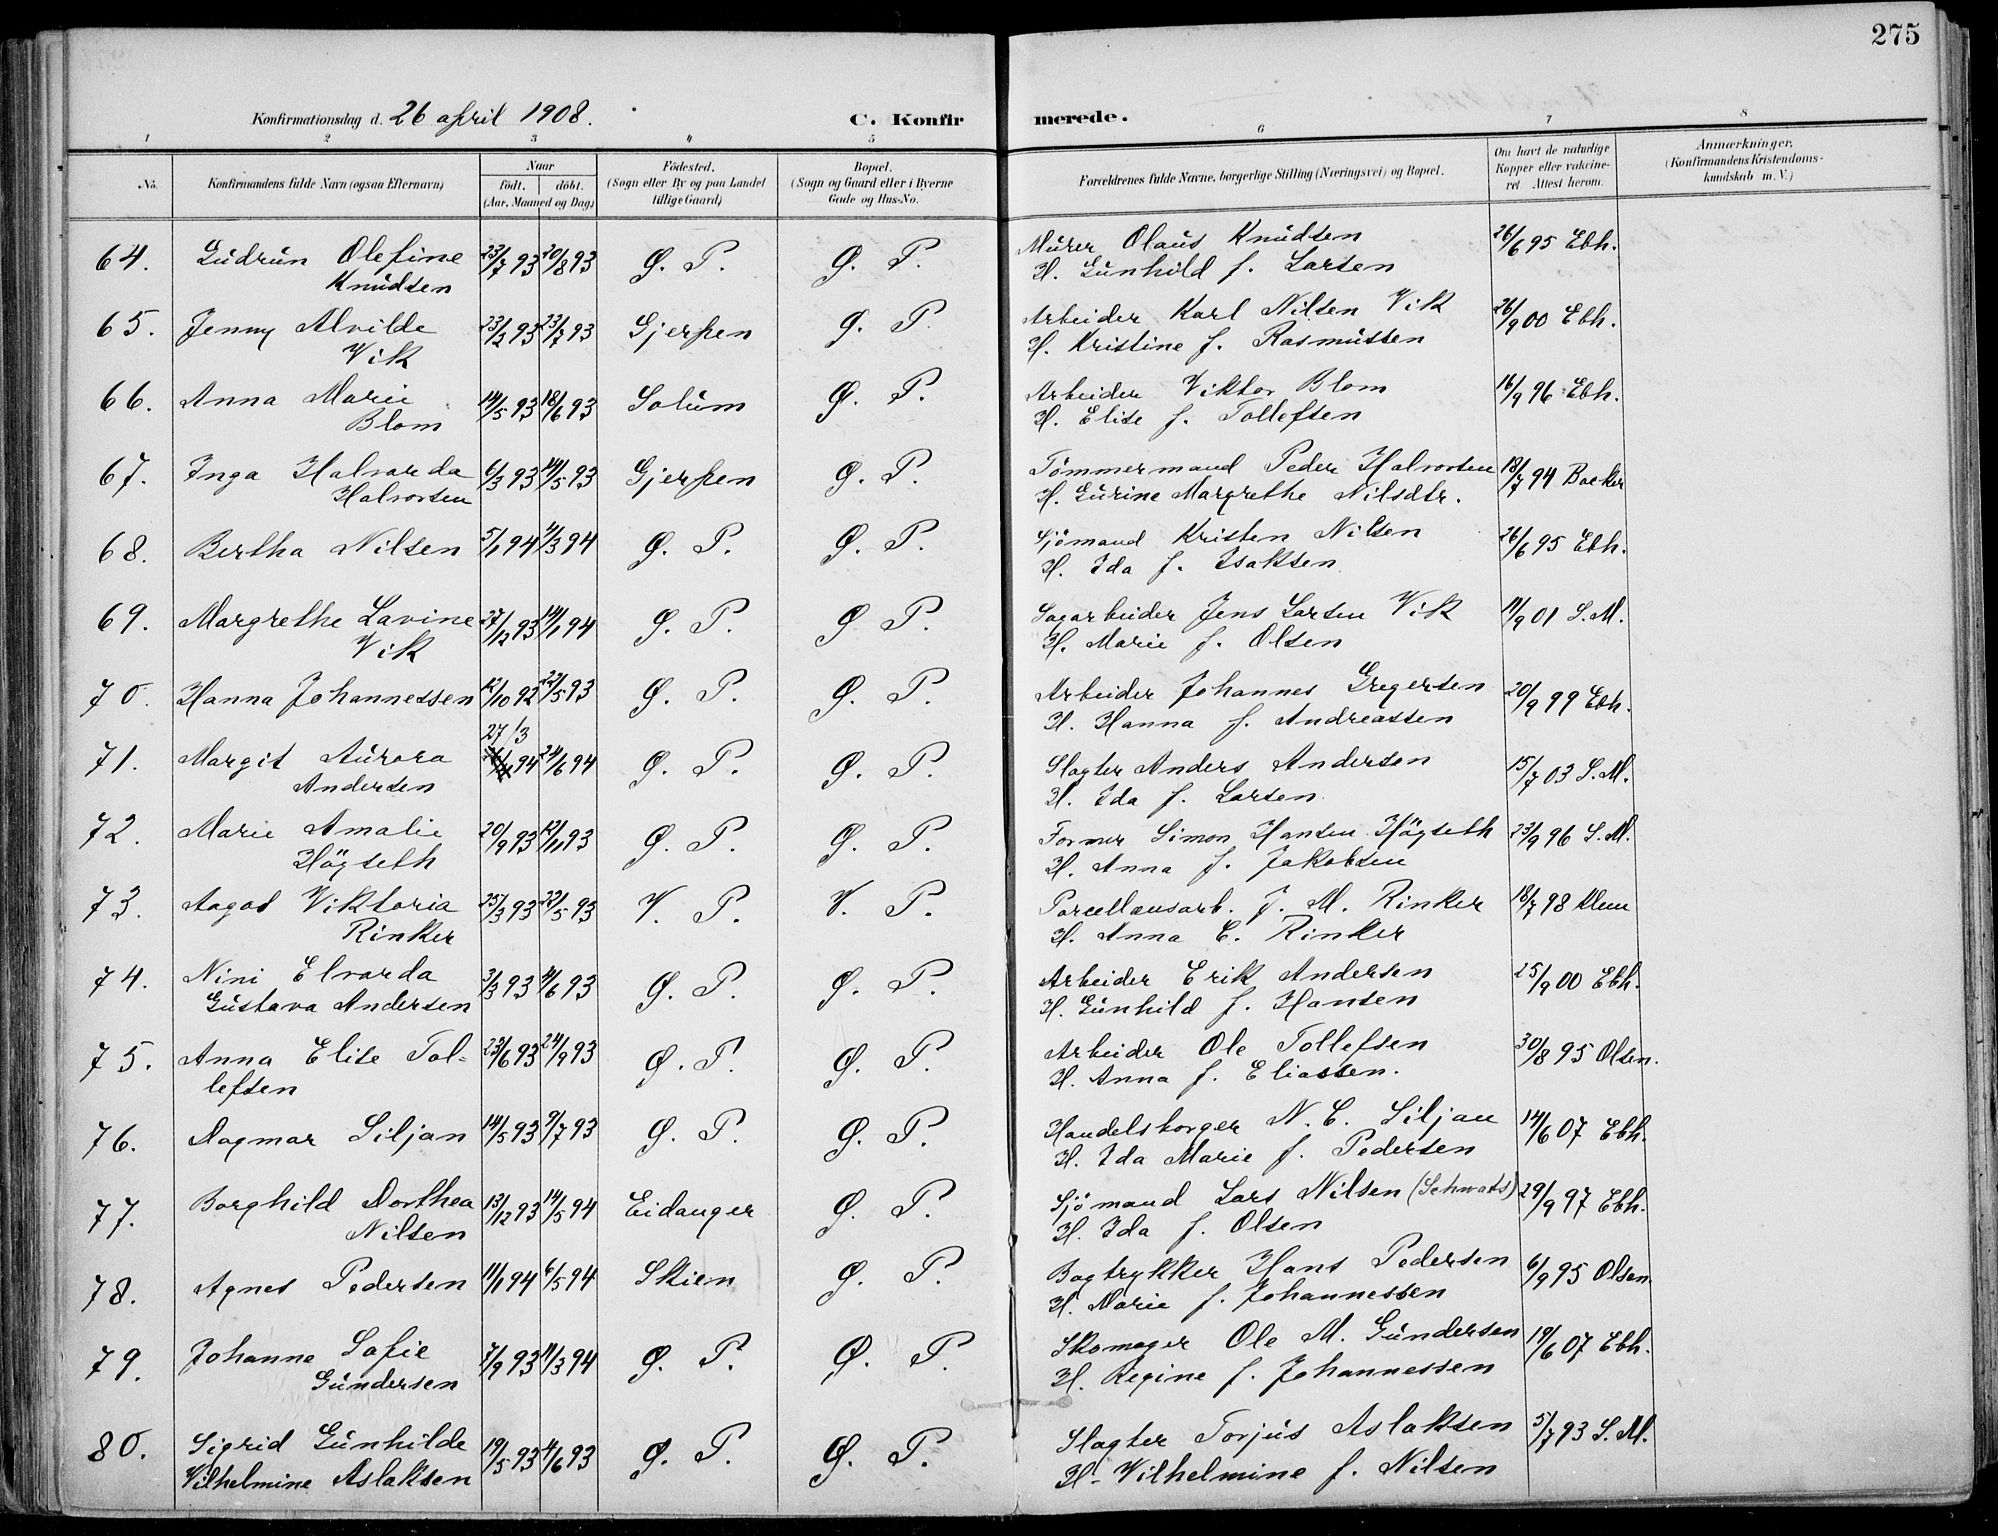 275
Konfirmationsdag d. 26 april 1908. C. Konfirmerede.
1 2 3 4 5 6 7 8
No. Konfirmandens fulde Navn (ogsaa Efternavn) Naar födt. döbt. (Aar, Maaned og Dag) Födested. (Sogn eller By og paa Landet tillige Gaard) Bopæl. (Sogn og Gaard eller i Byerne Gade og Hus-No. Forældrenes fulde Navne, borgerlige Stilling (Næringsvei) og Bopæl. Om havt de naturlige Kopper eller vakcineret. Attest herom. Anmærkninger. (Konfirmandens Kristendomskundskab m. V.)
64. Gudrun Olefine 23/7 93 20/8 93 Ø. P. Ø. P. Murer Olaus Knudsen 26/6 95 Ebh.
Knudsen H. Gunhild f. Larsen
65. Jenny Alvilde 23/2 93 23/7 93 Gjerpen Ø. P. Arbeider Karl Nilsen Vik 26/9 00 Ebh.
Vik H. Kristine f. Rasmussen
66. Anna Marie 14/5 93 18/6 93 Solum Ø. P. Arbeider Viktor Blom 16/9 96 Ebh.
Blom H. Elise f. Tollefsen
67. Inga Halvarda 6/3 93 14/5 93 Gjerpen Ø. P. Tömmermand Peder Halvorsen 18/7 94 Backer
Halvorsen H. Gurine Margrethe Nilsdtr.
68. Bertha Nilsen 5/1 94 4/3 94 Ø. P. Ø. P. Sjömand Kristen Nilsen 26/6 95 Ebh.
H. Ida f. Isaksen
69. Margrethe Lavine 27/12 93 14/1 94 Ø. P. Ø P. Sagarbeider Jens Larsen Vik 11/9 01 S. M.
Vik H. Marie f. Olsen
70. Hanna Johannessen 12/10 92 22/5 93 Ø. P. Ø. P. Arbeider Johannes Gregersen 20/9 99 Ebh.
H. Hanna f. Andreassen
27/3
71. Margit Aurora 94 24/6 94 Ø. P. Ø. P. Slagter Anders Andersen 15/7 03 S. M.
Andersen H. Ida f. Larsen.
72. Marie Amalie 20/9 93 12/11 93 Ø. P. Ø. P. Former Simon Hansen Högseth 23/9 96 S. M.
Högseth H. Anna f. Jakobsen
73. Aagot Viktoria 25/3 93 22/5 93 V. P. V. P. Porcellænsarb. J. M. Rinker 18/7 98
Rinker H. Anna C. Rinker
74. Nini Elvarda 3/3 93 4/6 93 Ø. P. Ø. P. Arbeider Erik Andersen 25/9 00 Ebh.
Gustava Andersen H. Gunhild f. Hansen
75. Anna Elise Tol- 23/6 93 24/9 93 Ø. P. Ø. P. Arbeider Ole Tollefsen 30/8 95 Olsen.
lefsen H. Anna f. Eliassen.
76. Dagmar Siljan 14/5 93 9/7 93 Ø. P. Ø. P. Handelsborger N. C. Siljan 14/6 07 Ebh.
H. Ida Marie f. Pedersen
77. Borghild Dorthea 13/12 93 14/5 94 Eidanger Ø. P. Sjömand Lars Nilsen (Schwats) 29/9 97 Ebh.
Nilsen H. Ida f. Olsen
78. Agnes Pedersen 11/1 94 6/5 94 Skien Ø. P. Bogtrykker Hans Pedersen 6/9 95 Olsen.
H. Marie f. Johannessen
79. Johanne Sofie 7/9 93 11/3 94 Ø. P. Ø. P. Skomager Ole M. Gundersen 19/6 07 Ebh.
Gundersen H. Regine f. Johannessen
80. Sigrid Gunhilde 19/5 93 4/6 93 Ø. P. Ø. P. Slagter Torjus Aslaksen 5/7 93 S. M.
Vilhelmine Aslaksen H. Wilhelmine f. Nilsen